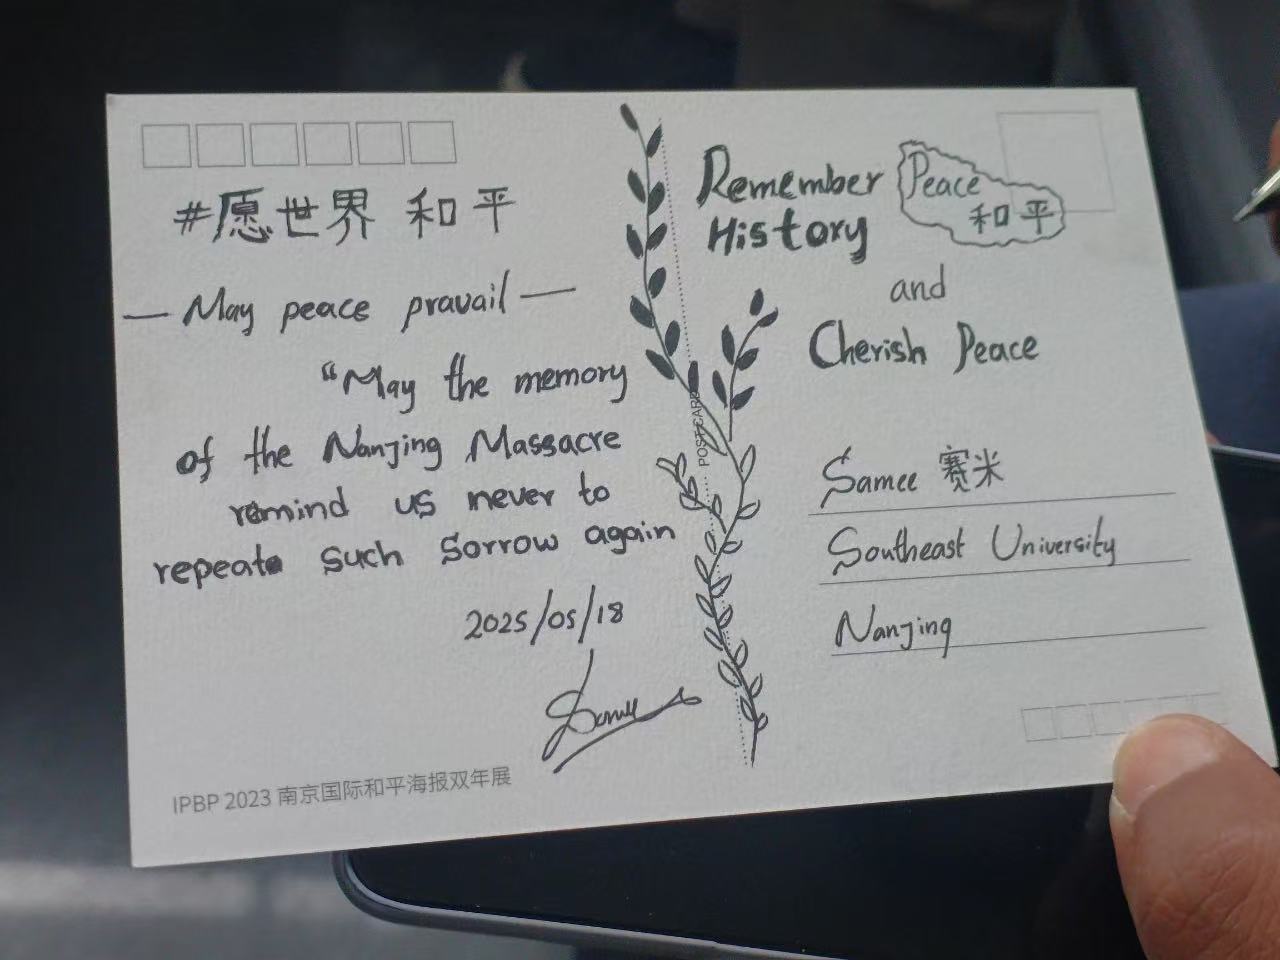 #愿世界 和平
— May peace pravail —
"May the memory
of the Nanjing Massacre
remind us never to
repeate such sorrow again
2025/05/18
Samee
IPBP 2023 南京国际和平海报双年展
POSTCARD
Remember
History
Peace
和平
and
Cherish Peace
Samee 赛米
Southeast University
Nanjing